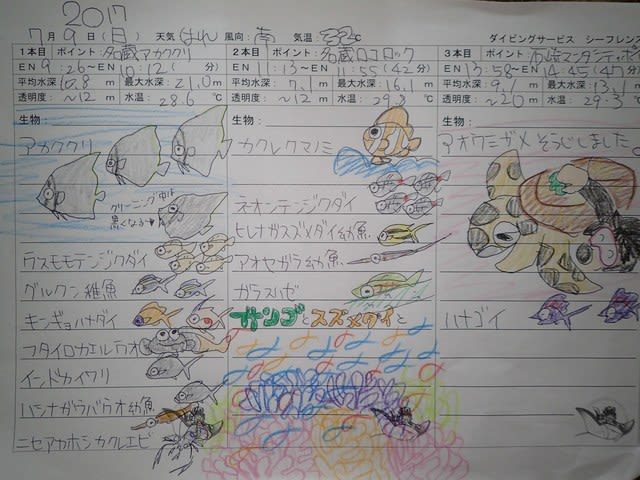 2017
7月9日(日) 天気 はれ 風向: 南 気温: 32℃ ダイビングサービス シーフレンズ
1本目 ポイント: 名蔵アカククリ
EN 9:26~EN 10:12 ( 分)
平均水深: 10.8m 最大水深: 21.0m
透明度: ~12m 水温: 28.6℃
生物:
アカククリ
クリーニング中は
黒くなる
ウスモモテンジクダイ
グルクン稚魚
キンギョハナダイ
フタイロカエルウオ
インドカイワリ
ハシナガウバウオ幼魚
ニセアカホシカクレエビ
2本目 ポイント: 名蔵ロコロック
EN 11:13~EN 11:55 (42分)
平均水深: 7.1m 最大水深: 16.1m
透明度: ~12m 水温: 29.3℃
生物:
カクレクマノミ
ネオンテンジクダイ
ヒレナガスズメダイ幼魚
アオセガラ幼魚
ガラスハゼ
サンゴとスズメダイと
3本目 ポイント: 石崎マンタシティポイ
EN 13:58~EN 14:45 (47分)
平均水深: 9.1m 最大水深: 13.1m
透明度: ~20m 水温: 29.3℃
生物:
アオウミガメ そうじしました。
ハナゴイ